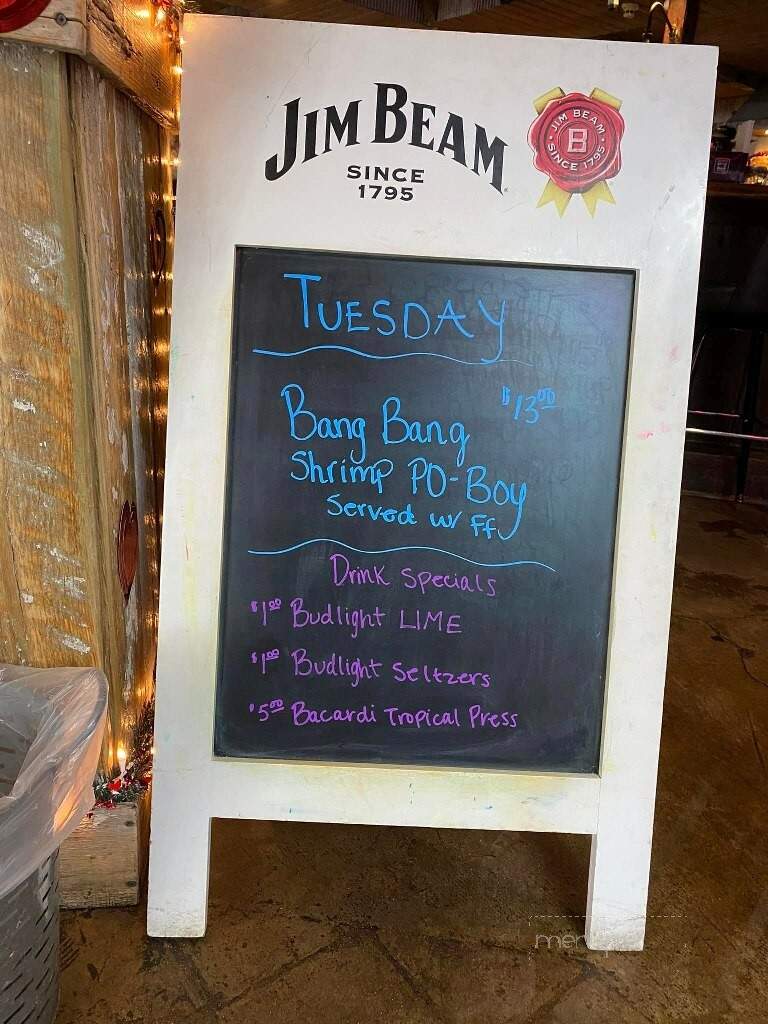 JIM BEAM
SINCE
1795
JIM BEAM
B
SINCE 1795
TUESDAY
$13.00
Bang Bang
Shrimp PO-BOY
Served w/ FF
Drink Specials
$1.00 Budlight LIME
$1.00 Budlight Seltzers
$5.00 Bacardi Tropical Press